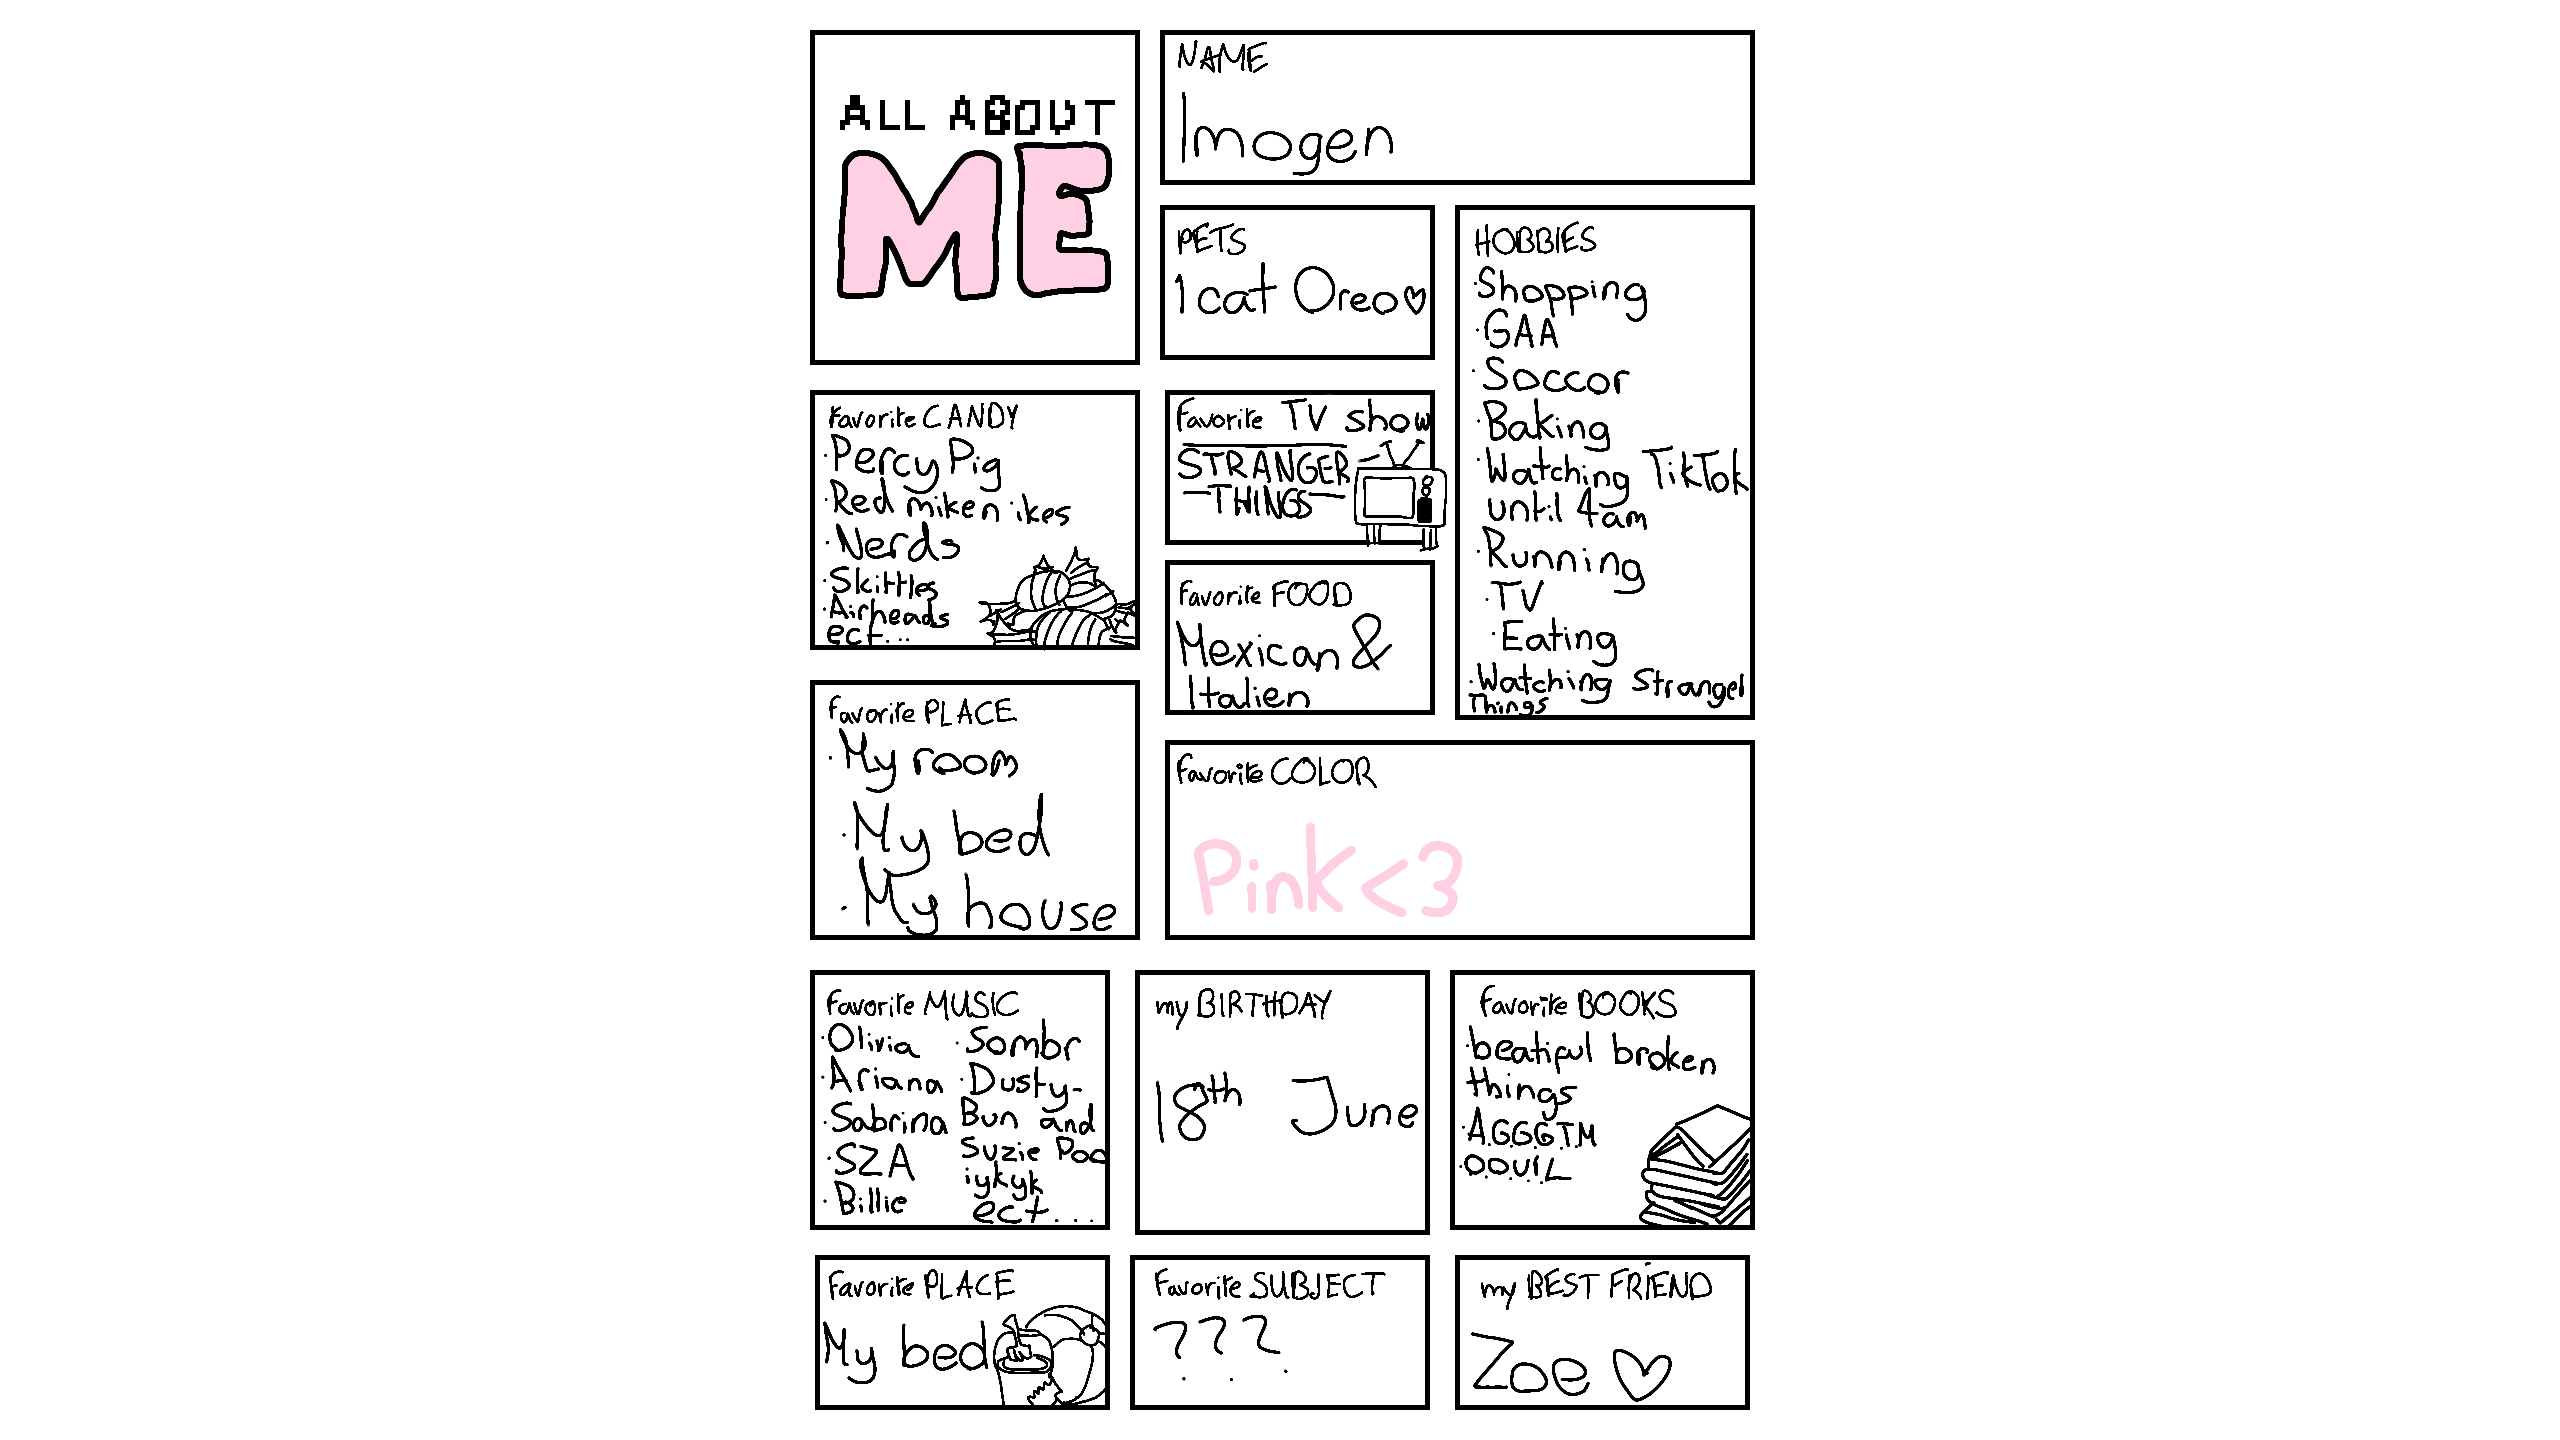 ALL ABOUT
ME
NAME
Imogen
PETS
1 cat Oreo♡
HOBBIES
·Shopping
·GAA
·Soccor
·Baking
·Watching TikTok
until 4am
·Running
·TV
·Eating
·Watching Stranger
Things
favorite CANDY
·Percy Pig
·Red miken ikes
·Nerds
·Skittles
·Airheads
ect...
Favorite TV show
STRANGER
THINGS
favorite FOOD
Mexican &
Italien
favorite PLACE
·My room
·My bed
·My house
favorite COLOR
Pink<3
favorite MUSIC
·Olivia
·Ariana
·Sabrina
·SZA
·Billie
·Sombr
·Dusty-
Bun and
Suzie Poo
iykyk
ect...
my BIRTHDAY
18th June
favorite BOOKS
·beatiful broken
things
·A.G.G.G.T.M
·O.O.U.I.L
favorite PLACE
My bed
Favorite SUBJECT
???
my BEST FRIEND
Zoe ♡